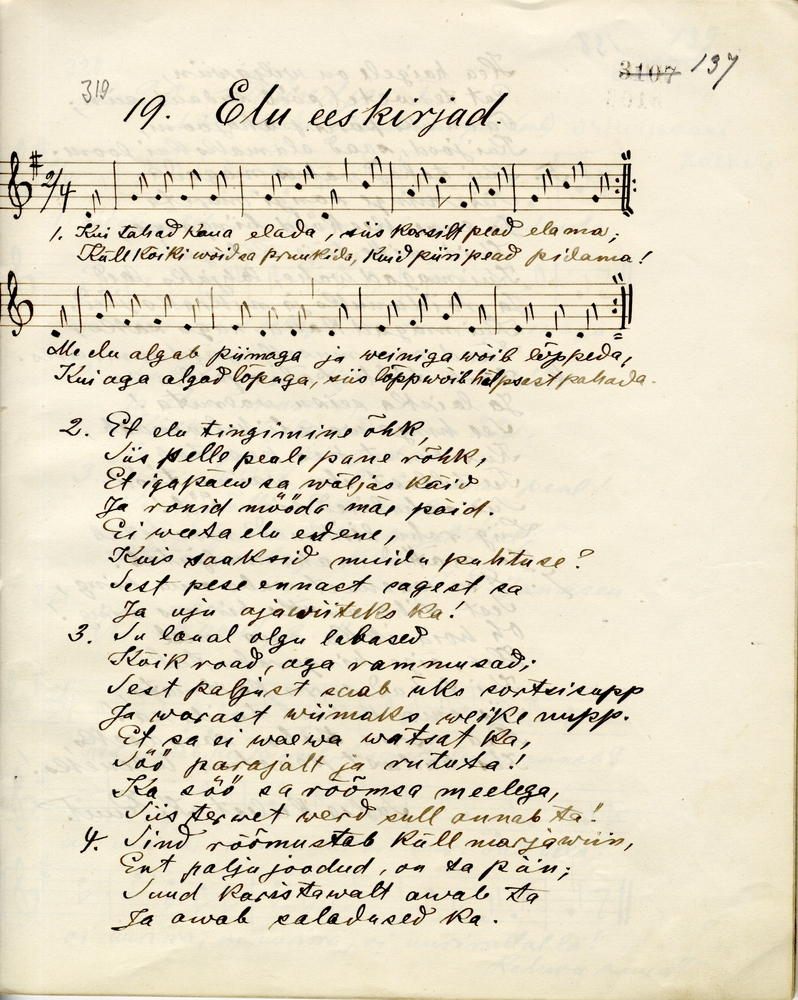 3107 137
319
19. Elu eeskirjad.
2/4
1. Kui tahad kaua elada, siis karsilt pead elama;
Küll kõiki wõid sa pruukida, kuid piiri pead pidama!
Me elu algab piimaga ja weiniga wõib lõppeda,
Kui aga algad lõpuga, siis lõpp wõib hõlpsast pahada.
2. Et elu tingimine õhk,
Siis selle peale pane rõhk,
Et igapäew sa wäljas käid
Ja ronid mööda mäe päid.
Ei weeta elu edene,
Kuis saaksid muidu puhtuse?
Sest pese ennast sagest sa
Ja uju ajawiiteks ka!
3. Su laual olgu labased
Kõik road, aga rammusad;
Sest paljust saab üks sortsisupp
Ja warast wiimaks weike nupp.
Et sa ei waewa watsat ka,
Söö parajalt ja rututa!
Ka söö sa rõõmsa meelega,
Siis terwet werd sull annab ta!
4. Sind rõõmustab küll marjawiin,
Ent palju joodud, on ta piin;
Suud karistawalt awab ta
Ja awab saladused ka.